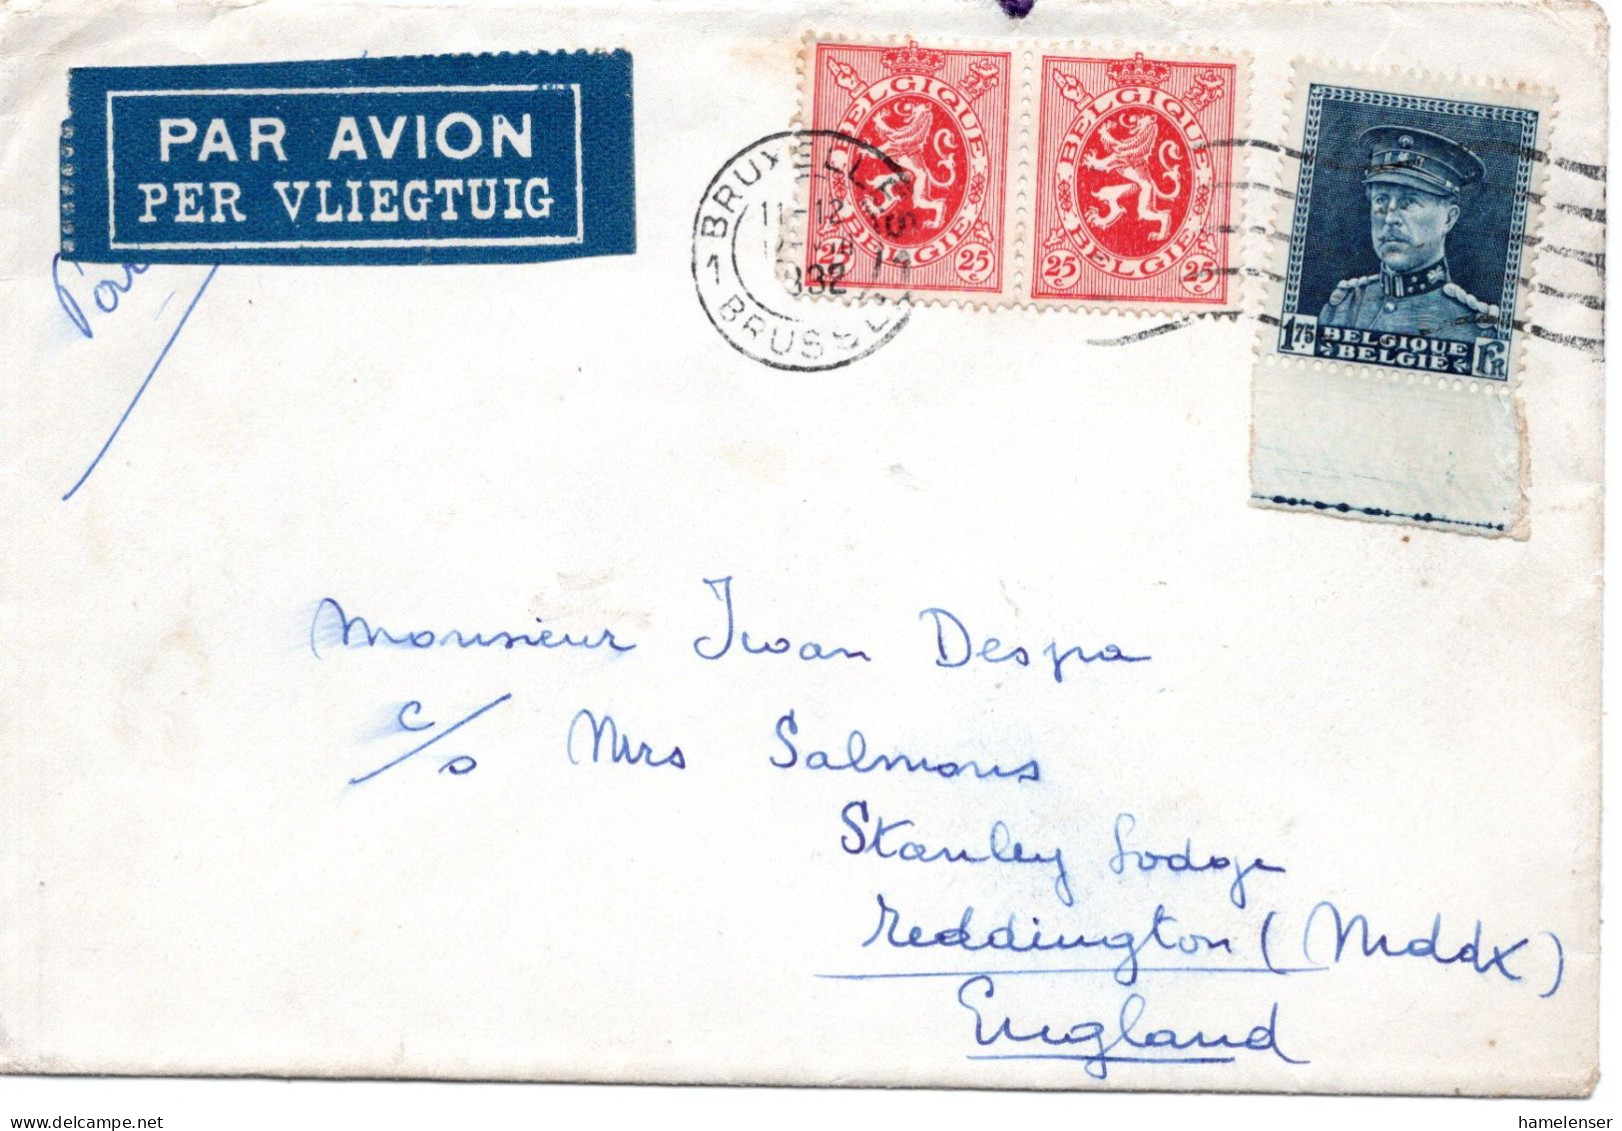 PAR AVION
PER VLIEGTUIG
Par
BRUXELLES
11-12
1932
1 BRUSSEL 1
BELGIQUE
BELGIE
25c 25c
BELGIQUE
BELGIE
25c 25c
1.75 BELGIQUE BELGIË FR
Monsieur Iwan Despa
c/o Mrs Salmons
Stanley Lodge
Reddington (Mddx)
England
hamelenser